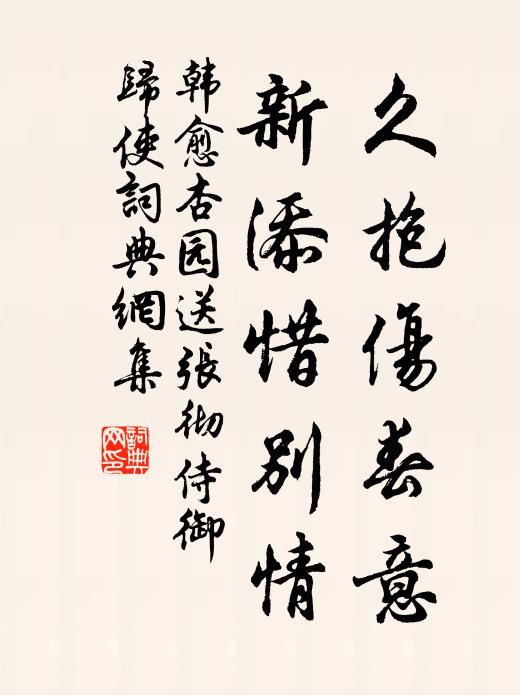 久抱傷春意
新添惜别情
韩愈杏园送張彻侍御
歸使詞典網集
詞典
网印